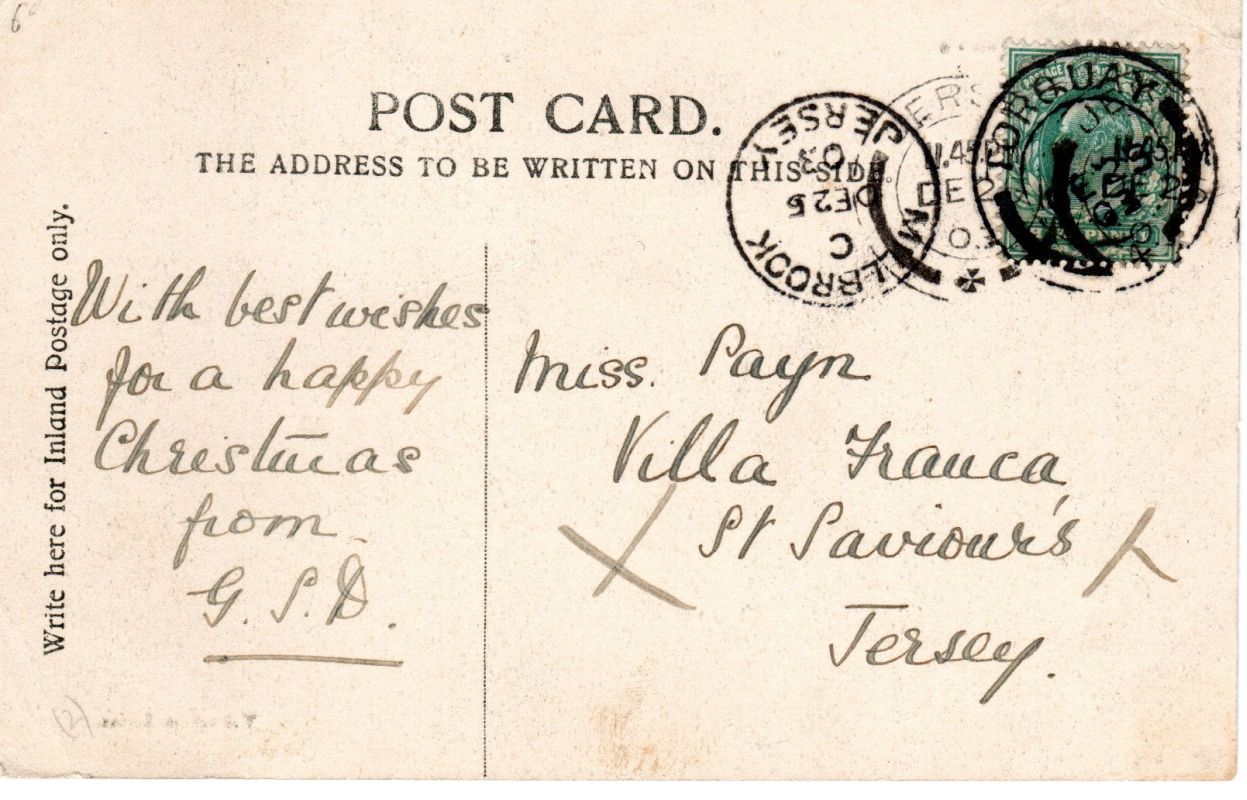 6d
POST CARD.
THE ADDRESS TO BE WRITTEN ON THIS SIDE.
TORQUAY
MILLBROOK
JERSEY
C
DE 25
03
11.45
DE 2
03
Write here for Inland Postage only.
With best wishes
for a happy
Christmas
from
G. S. D.
Miss. Payn
Villa Franca
St Saviour's
Jersey.
(2)